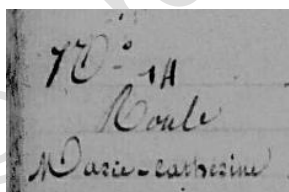 N° 14
Roule
Marie-catherine